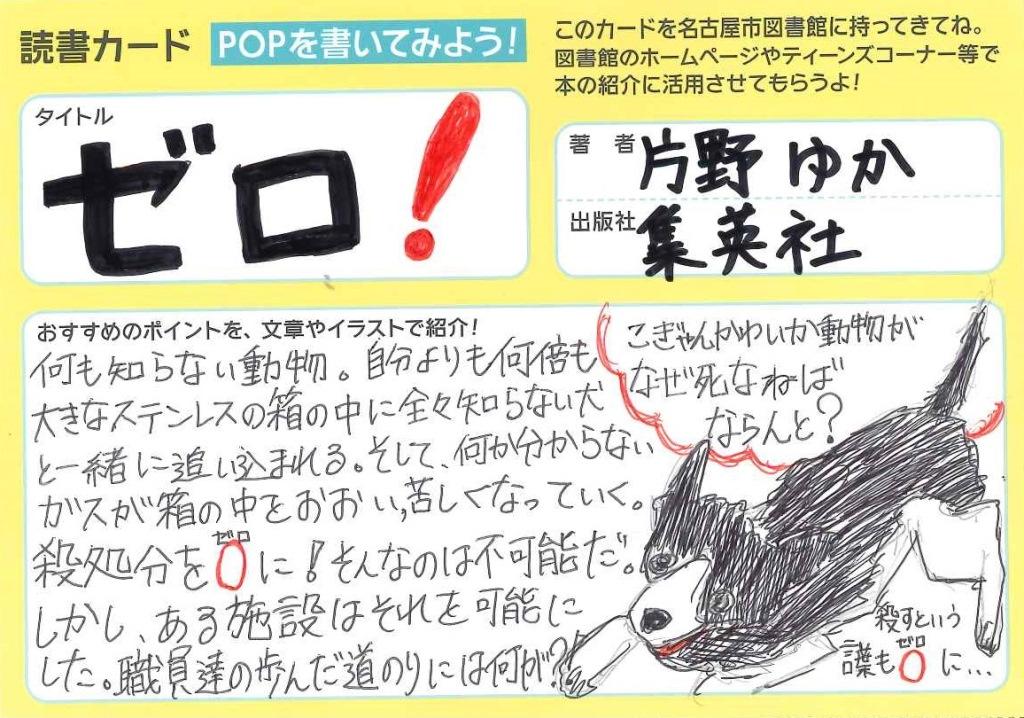 読書カード POPを書いてみよう!
このカードを名古屋市図書館に持ってきてね。
図書館のホームページやティーンズコーナー等で
本の紹介に活用させてもらうよ!
タイトル
ゼロ!
著者 片野ゆか
出版社 集英社
おすすめのポイントを、文章やイラストで紹介!
何も知らない動物。自分よりも何倍も
大きなステンレスの箱の中に全々知らない犬
と一緒に追い込まれる。そして、何か分からない
ガスが箱の中をおおい,苦しくなっていく。
ゼロ
殺処分を0に!そんなのは不可能だ。
しかし、ある施設はそれを可能に
した。職員達の歩んだ道のりには何が?
こぎゃんかわいか動物が
なぜ死なねば
ならんと?
殺すという
ゼロ
も0に…